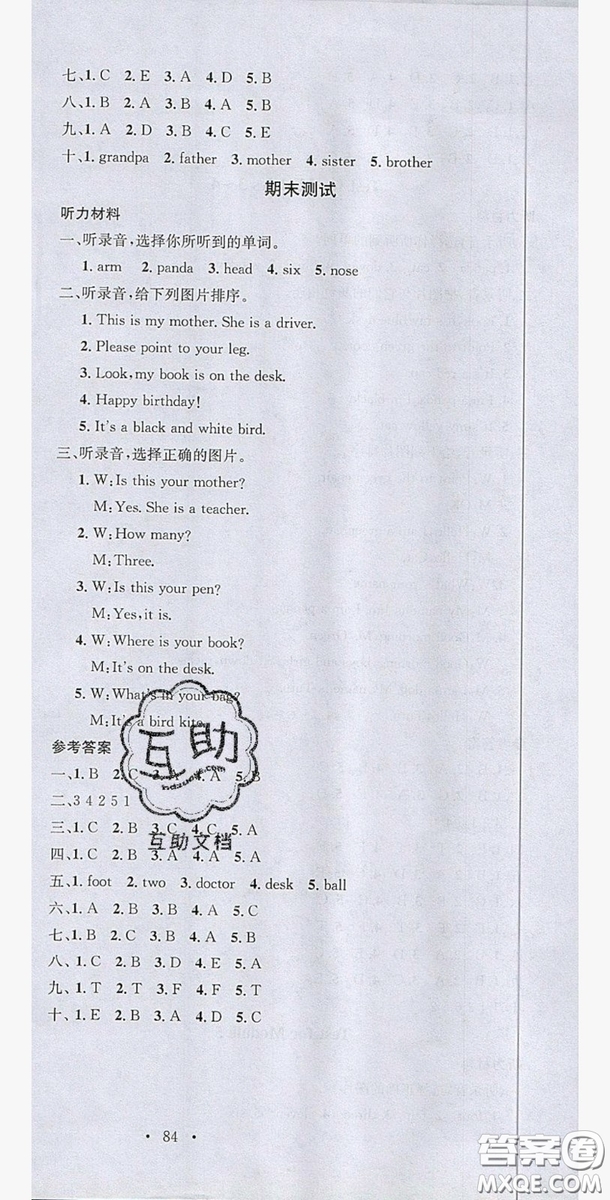 七、1. C  2. E  3. A  4. D  5. B
八、1. B  2. A  3. B  4. A  5. B
九、1. A  2. D  3. B  4. C  5. E
十、1. grandpa  2. father  3. mother  4. sister  5. brother
期末测试
听力材料
一、听录音,选择你所听到的单词。
1. arm  2. panda  3. head  4. six  5. nose
二、听录音,给下列图片排序。
1. This is my mother. She is a driver.
2. Please point to your leg.
3. Look, my book is on the desk.
4. Happy birthday!
5. It's a black and white bird.
三、听录音,选择正确的图片。
1. W: Is this your mother?
M: Yes. She is a teacher.
2. W: How many?
M: Three.
3. W: Is this your pen?
M: Yes, it is.
4. W: Where is your book?
M: It's on the desk.
5. W: What's in your bag?
M: It's a bird kite.
参考答案
一、1. B  2. C  3. A  4. A  5. B
二、3 4 2 5 1
三、1. C  2. B  3. C  4. C  5. A
四、1. C  2. B  3. A  4. A  5. A
五、1. foot  2. two  3. doctor  4. desk  5. ball
六、1. A  2. B  3. A  4. B  5. C
七、1. B  2. C  3. C  4. A  5. B
八、1. C  2. B  3. D  4. E  5. A
九、1. T  2. T  3. F  4. F  5. T
十、1. E  2. B  3. A  4. D  5. C
互助
互助文档
· 84 ·
答案圈
MXQE.COM